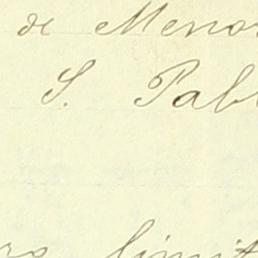 de Menor
S. Pabl
ro limit